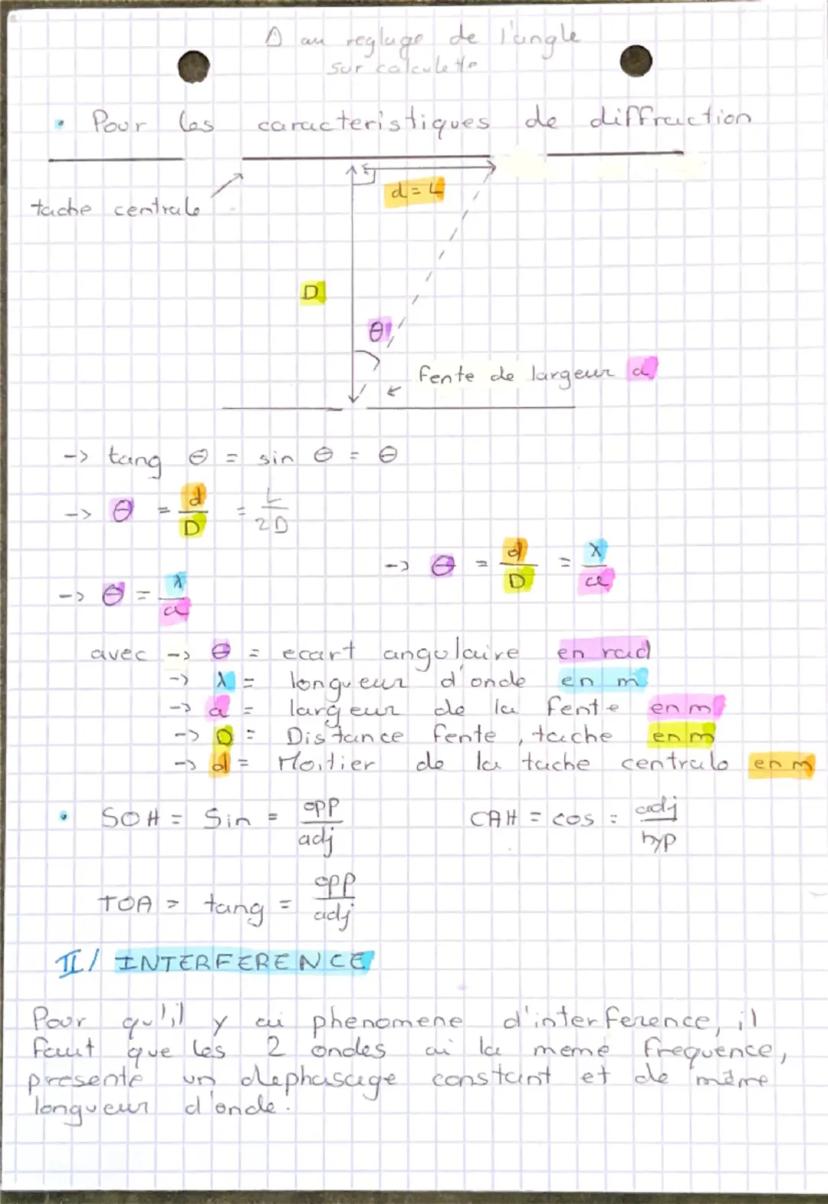 ⚠ au reglage de l'angle
sur calculette
• Pour les caracteristiques de diffraction
tache centrale
d = L
D
θ
fente de largeur a
-> tang θ = sin θ = θ
-> θ = d/D = L/2D
-> θ = d/D = λ/a
-> θ = λ/a
avec -> θ = ecart angulaire en rad
-> λ = longueur d'onde en m
-> a = largeur de la fente en m
-> D = Distance fente, tache en m
-> d = Moitier de la tache centrale en m
• SOH = Sin = opp/adj CAH = cos = adj/hyp
TOA = tang = opp/adj
II/ INTERFERENCE
Pour qu'il y ai phenomene d'interference, il
faut que les 2 ondes ai la meme frequence,
presente un dephasage constant et de même
longueur d'onde.